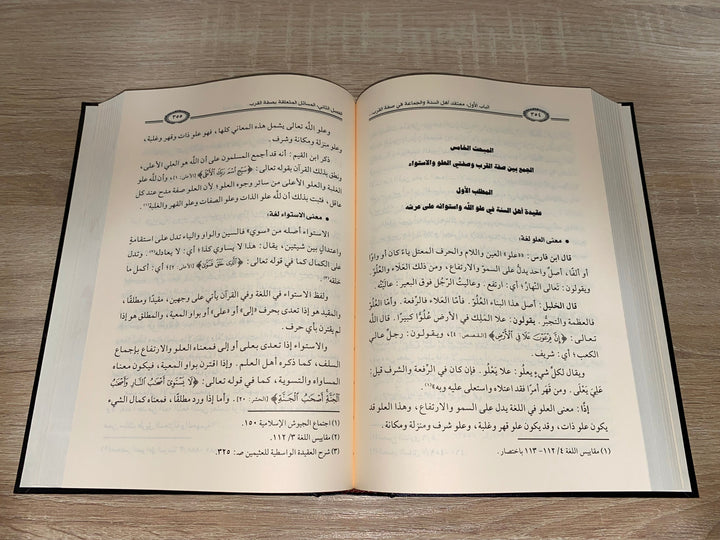 ٣٥٤
الباب الأول: معتقد أهل السنة والجماعة في صفة القرب
المبحث الخامس
الجمع بين صفة القرب وصفتي العلو والاستواء
المطلب الأول
عقيدة أهل السنة في علو الله واستوائه على عرشه
• معنى العلو لغة:
قال ابن فارس: «علو» العين واللام والحرف المعتل ياءً كان أو واوًا
أو ألفًا، أصل واحد يدلّ على السموّ والارتفاع، ومن ذلك العَلَاء والعُلُوّ.
ويقولون: تعالى النهارُ؛ أي: ارتفع. وعاليتُ الرّجُل فوق البعير: عاليتُه
قال الخليل: أصل هذا البناء العُلُوّ. فأمّا العَلَاء فالرِّفعة. وأمّا العُلُوّ
فالعظمة والتجبُّر. يقولون: علا المَلِك في الأرض عُلُوًّا كبيرًا. قال الله
تعالى: ﴿إِنَّ فِرْعَوْنَ عَلَا فِي الْأَرْضِ﴾ [القصص: ٤]، ويقولون: رجلٌ عالي
الكعب؛ أي: شريف.
ويقال لكلّ شيءٍ يعلُو: علا يَعْلُو. فإن كان في الرِّفعة والشرف قيل:
عَلِيَ يَعْلَى. ومن قَهَر أمرًا فقد اعتلاه واستعلى عليه وبه⁽¹⁾.
إذًا: معنى العلو في اللغة يدل على السمو والارتفاع، وهذا العلو قد
يكون علو ذات، وقد يكون علو قهر وغلبة، وعلو شرف ومنزلة ومكانة.
(١) مقاييس اللغة ٤/ ١١٢- ١١٣ باختصار.
الفصل الثاني: المسائل المتعلقة بصفة القرب
٣٥٥
وعلو الله تعالى يشمل هذه المعاني كلها، فهو علو ذات وقهر وغلبة،
وعلو منزلة ومكانة وشرف.
ذكر ابن القيم: أنه قد أجمع المسلمون على أن الله هو العلي الأعلى،
ونطق بذلك القرآن بقوله تعالى: ﴿سَبِّحِ اسْمَ رَبِّكَ الْأَعْلَى﴾ [الأعلى: ١]، وأن لله علو
الغلبة والعلو الأعلى من سائر وجوه العلو؛ لأن العلو صفة مدح عند كل
عاقل، فثبت بذلك أن لله علو الذات وعلو الصفات وعلو القهر والغلبة⁽¹⁾.
• معنى الاستواء لغة:
الاستواء أصله من «سوي» فالسين والواو والياء تدل على استقامةٍ
واعتدالٍ بين شيئين، يقال: هذا لا يساوي كذا؛ أي: لا يعادله⁽²⁾. وتدل
على الكمال كما في قوله تعالى: ﴿الَّذِي خَلَقَ فَسَوَّى﴾ [الأعلى: ٢]؛ أي: أكمل ما
خلقه⁽³⁾.
ولفظ الاستواء في اللغة وفي القرآن يأتي على وجهين، مقيدًا ومطلقًا،
والمقيد هو إذا تعدى بحرف «إلى» أو «على» أو بواو المعية، والمطلق هو إذا لم
يقترن بأي حرف.
والاستواء إذا تعدى بعلى أو إلى فمعناه العلو والارتفاع بإجماع
السلف، كما ذكره أهل العلم. وإذا اقترن بواو المعية، فيكون معناه
المساواه والتسوية، كما في قوله تعالى: ﴿لَا يَسْتَوِي أَصْحَابُ النَّارِ وَأَصْحَابُ
الْجَنَّةِ أَصْحَابُ الْجَنَّةِ﴾ [الحشر: ٢٠]. وأما إذا ورد مطلقًا، فمعناه كمال الشيء
(١) اجتماع الجيوش الإسلامية ١٥٠.
(٢) مقاييس اللغة ٣/ ١١٢.
(٣) شرح العقيدة الواسطية للعثيمين ص: ٣٢٥.